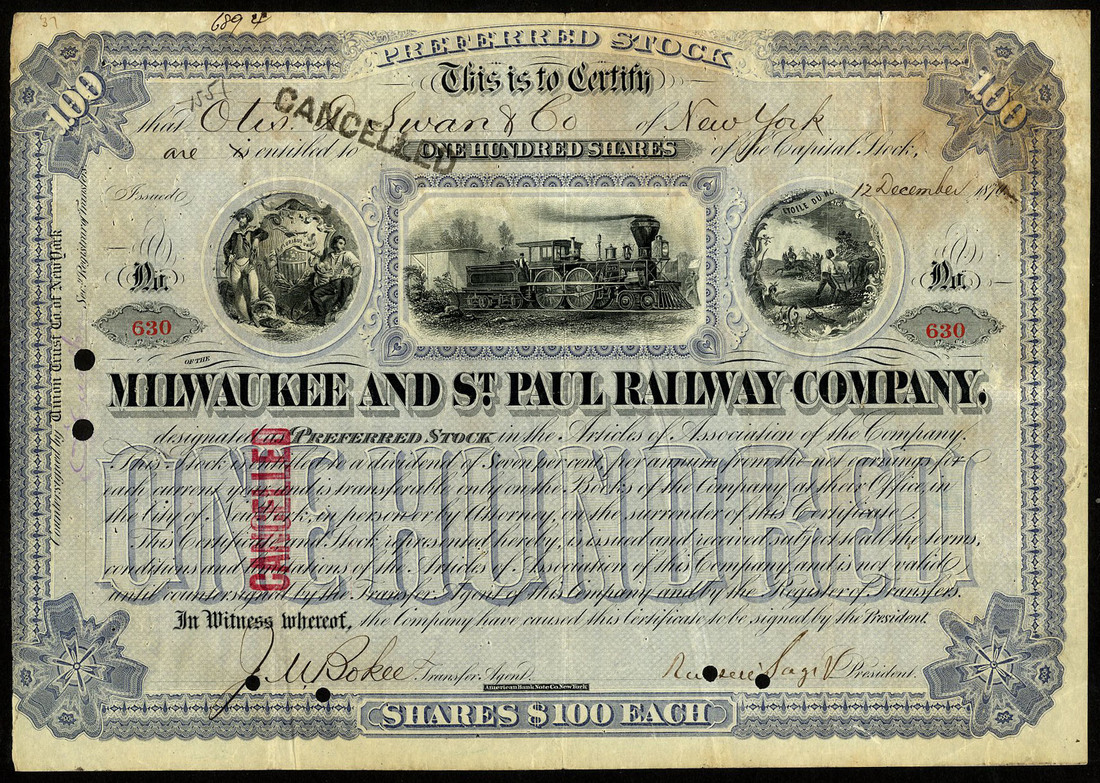 37
6894
PREFERRED STOCK
This is to Certify
100
100
1551
CANCELLED
that Otis D. Swan & Co of New York
are is entitled to ONE HUNDRED SHARES of the Capital Stock,
Issued 12 December 187
ETOILE DU
No. 630
No. 630
OF THE
MILWAUKEE AND ST. PAUL RAILWAY COMPANY,
designated as PREFERRED STOCK in the Articles of Association of the Company.
This Stock is entitled to a dividend of Seven per cent per annum from the net earnings for
each current year, and is transferable only on the Books of the Company at their Office in
the City of New York, in person or by Attorney, on the surrender of this Certificate.
This Certificate and Stock represented hereby, is issued and received subject to all the terms,
conditions and limitations of the Articles of Association of this Company, and is not valid
until countersigned by the Transfer Agent of this Company and by the Register of Transfers.
ONE HUNDRED
CANCELLED
In Witness whereof, the Company have caused this Certificate to be signed by the President.
J. M. Bokee Transfer Agent.
Russell Sage V President.
American Bank Note Co. New York
SHARES $100 EACH
Countersigned by Union Trust Co. of New York